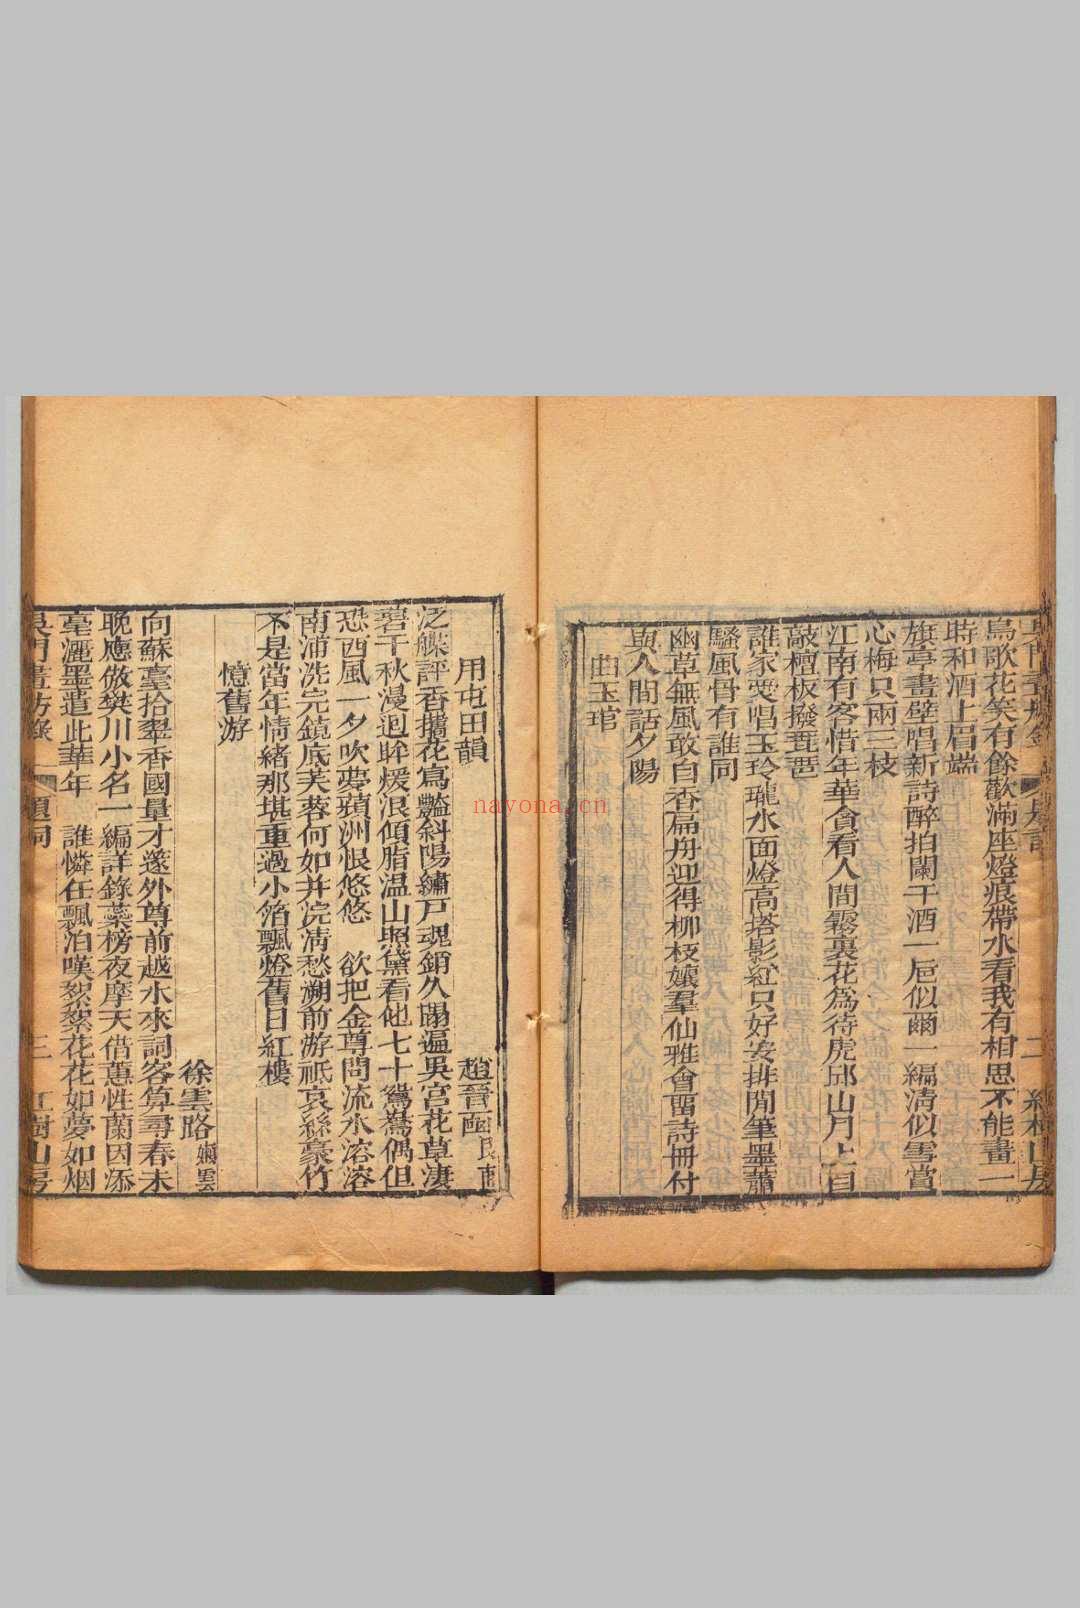 鳥歌花笑有餘歡滿座燈痕帶水看我有相思不能畫一
時和酒上眉端
旗亭畫壁唱新詩醉拍闌干酒一卮似爾一編清似雪賞
心梅只兩三枝
江南有客惜年華貪看人間霧裏花爲待虎邱山月上自
敲檀板撥琵琶
誰家愛唱玉玲瓏水面燈高塔影紅只好安排閒筆墨蕭
騷風骨有誰同
幽草無風敢自香扁舟迎得柳枝孃羣仙雅會畱詩冊付
與人間話夕陽
曲玉琯
用屯田韻
趙晉函
泛艓評香攜花寫豔斜陽繡戸魂銷久蹋遍吳宮花草淒
碧千秋漫迴眸煖浪傾脂温山照黛看他七十鴛鴦偶但
恐西風一夕吹夢蘋洲恨悠悠 欲把金尊問流水溶溶
南浦洗完鏡底芙蓉何如并浣淸愁溯前游祇哀絲豪竹
不是當年情緒那堪重過小箔飄燈舊日紅樓
憶舊游
徐雲路 嬾雲
向蘇臺拾翠香國量才遂外尊前越水來詞客算尋春未
晚應倣樊川小名一編詳錄藥榜夜摩天借蕙性蘭因添
毫灑墨遣此華年 誰憐任飄泊嘆絮絮花花如夢如烟
吳門畫舫錄 題詞 三 紅樹山房
nayona.cn